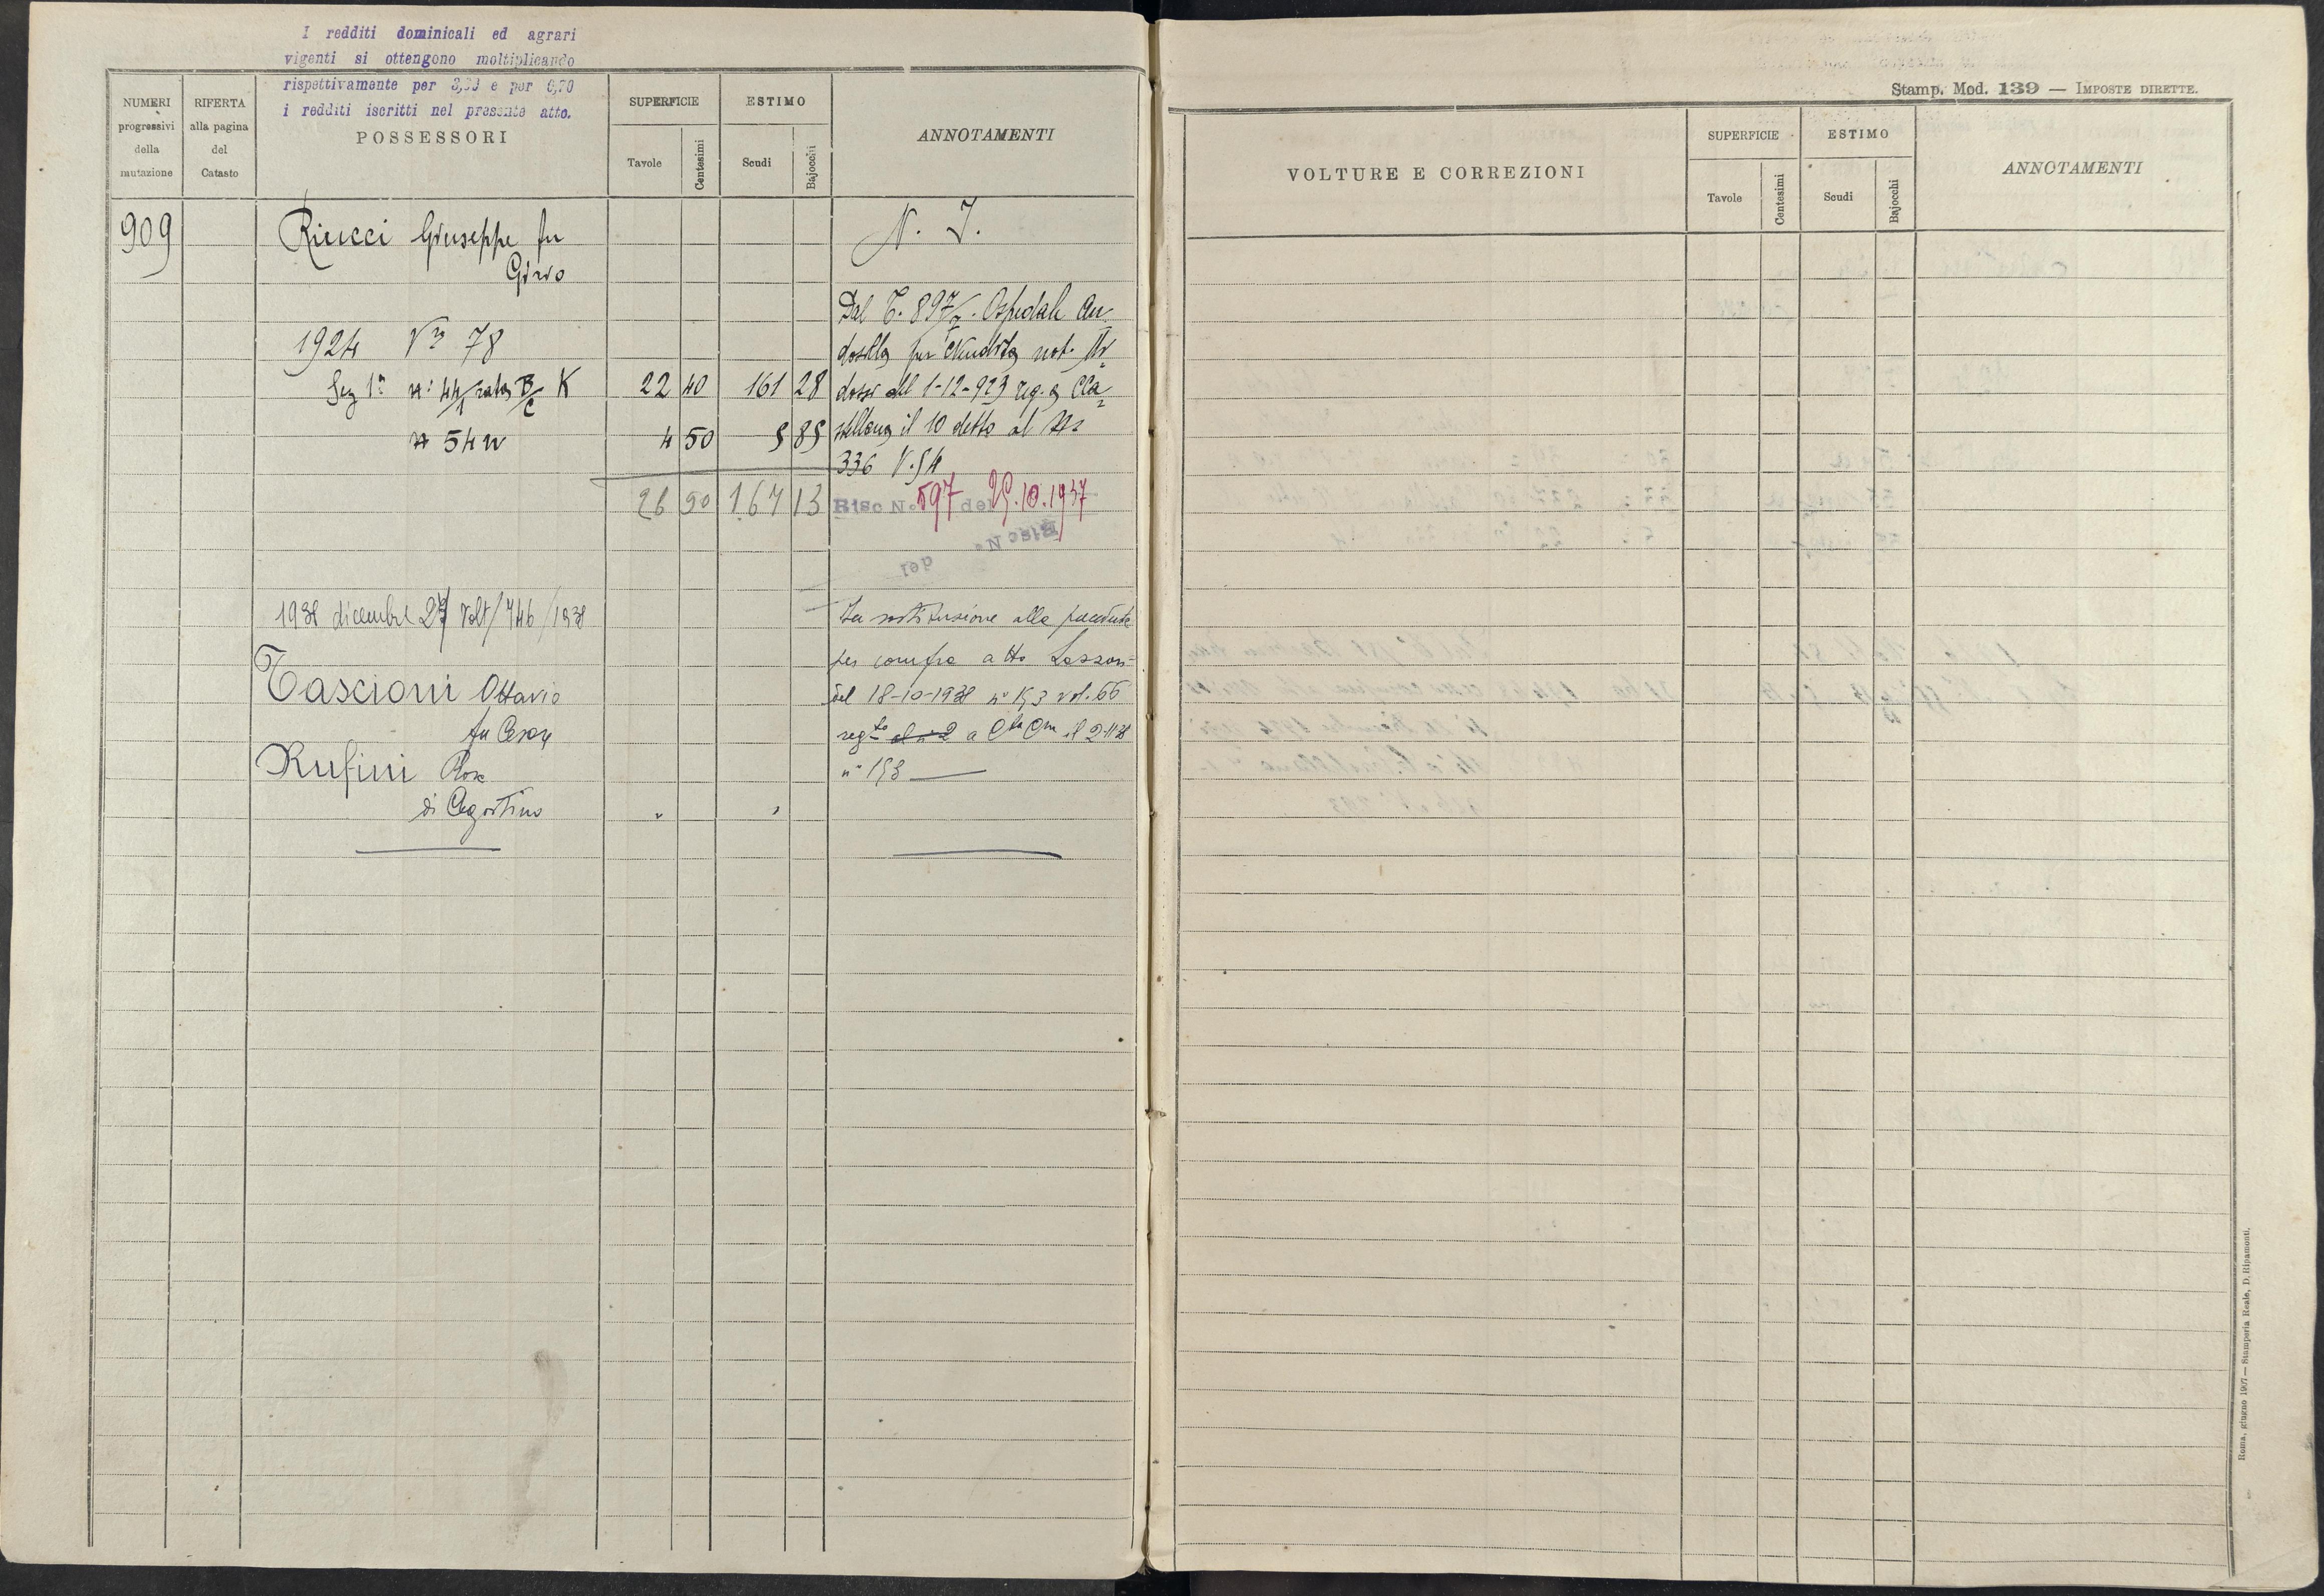 I redditi dominicali ed agrari
vigenti si ottengono moltiplicando
rispettivamente per 3,33 e per 6,70
i redditi iscritti nel presente atto.
NUMERI
progressivi
della
mutazione
RIFERTA
alla pagina
del
Catasto
POSSESSORI
SUPERFICIE
Tavole
Centesimi
ESTIMO
Scudi
Bajocchi
ANNOTAMENTI
909
Riucci Giuseppe fu
N. I.
Dal T. 897 Ospedale An
1924 Vª 78
dosilla per vendita not.
Sez 1ª n: 44 rata B/c K 22 40 161 28
dossi del 1-12-923 reg. a Ca
n 54 4 50 5 85
stellana il 10 detto al
336 V. 54
26 90 167 13
Risc N. 597 del 25.10.1937
Risc N.
del
1938 dicembre 27 Volt/746/1938
In sostituzione alla precedente
per compra atto
Tascioni Ottavio
del 18-10-1938 n° 153 vol. 66
fu Cesare
reg.to a il 2-11-38
Rufini Rosa
n° 153
di Agostino " "
Stamp. Mod. 139 — IMPOSTE DIRETTE.
VOLTURE E CORREZIONI
SUPERFICIE
Tavole
Centesimi
ESTIMO
Scudi
Bajocchi
ANNOTAMENTI
Roma, giugno 1907 — Stamperia Reale, D. Ripamonti.